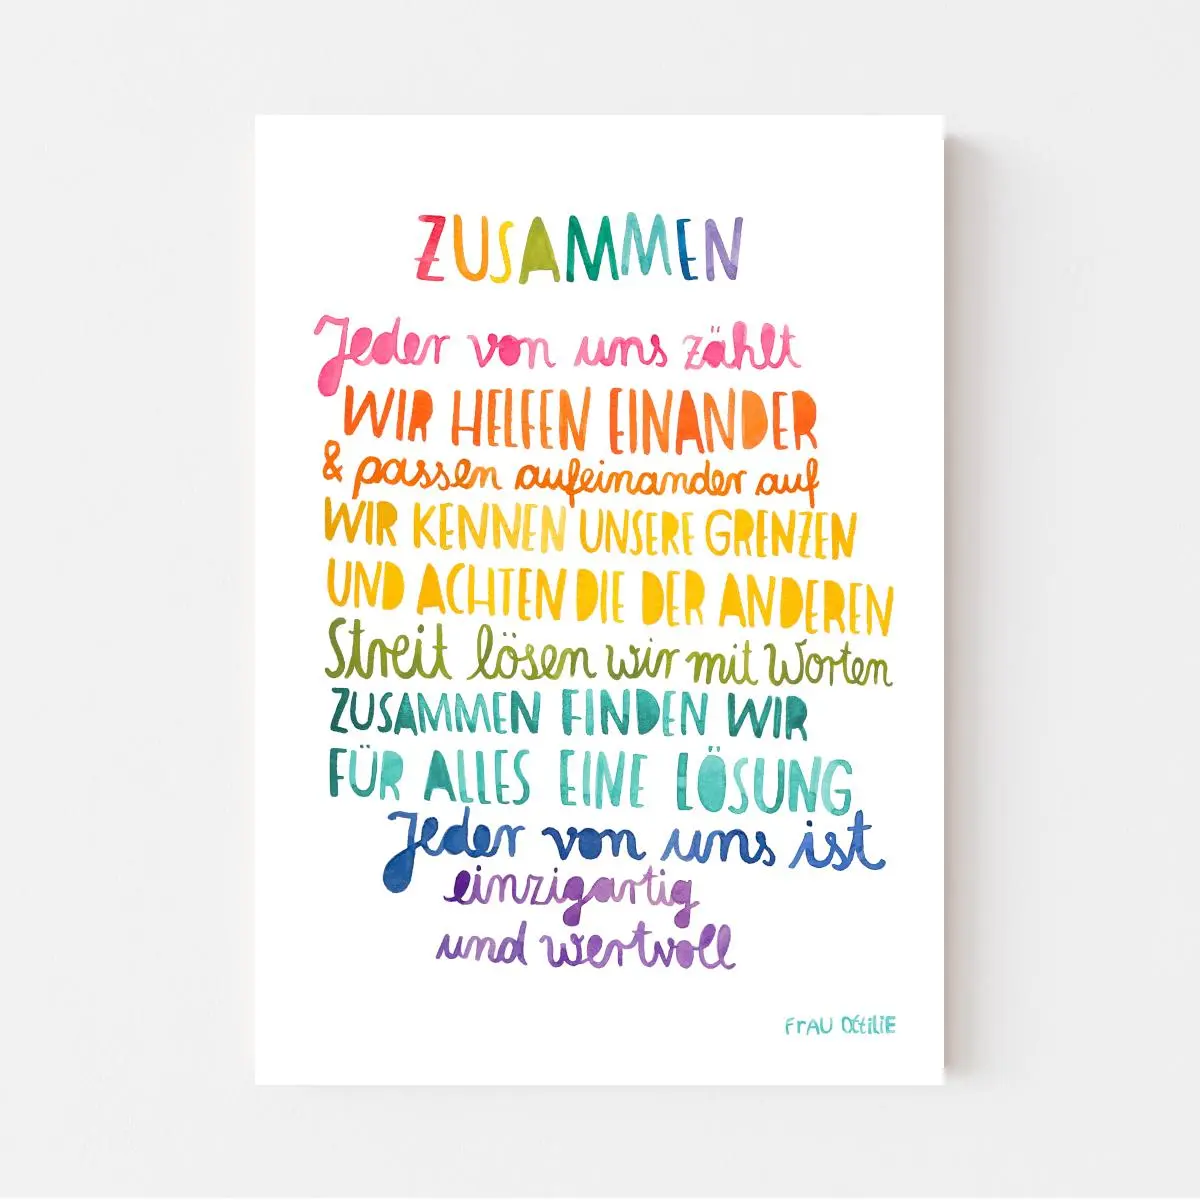 ZUSAMMEN
Jeder von uns zählt
WIR HELFEN EINANDER
& passen aufeinander auf
WIR KENNEN UNSERE GRENZEN
UND ACHTEN DIE DER ANDEREN
Streit lösen wir mit Worten
ZUSAMMEN FINDEN WIR
FÜR ALLES EINE LÖSUNG
Jeder von uns ist
einzigartig
und wertvoll
FRAU OTTILIE